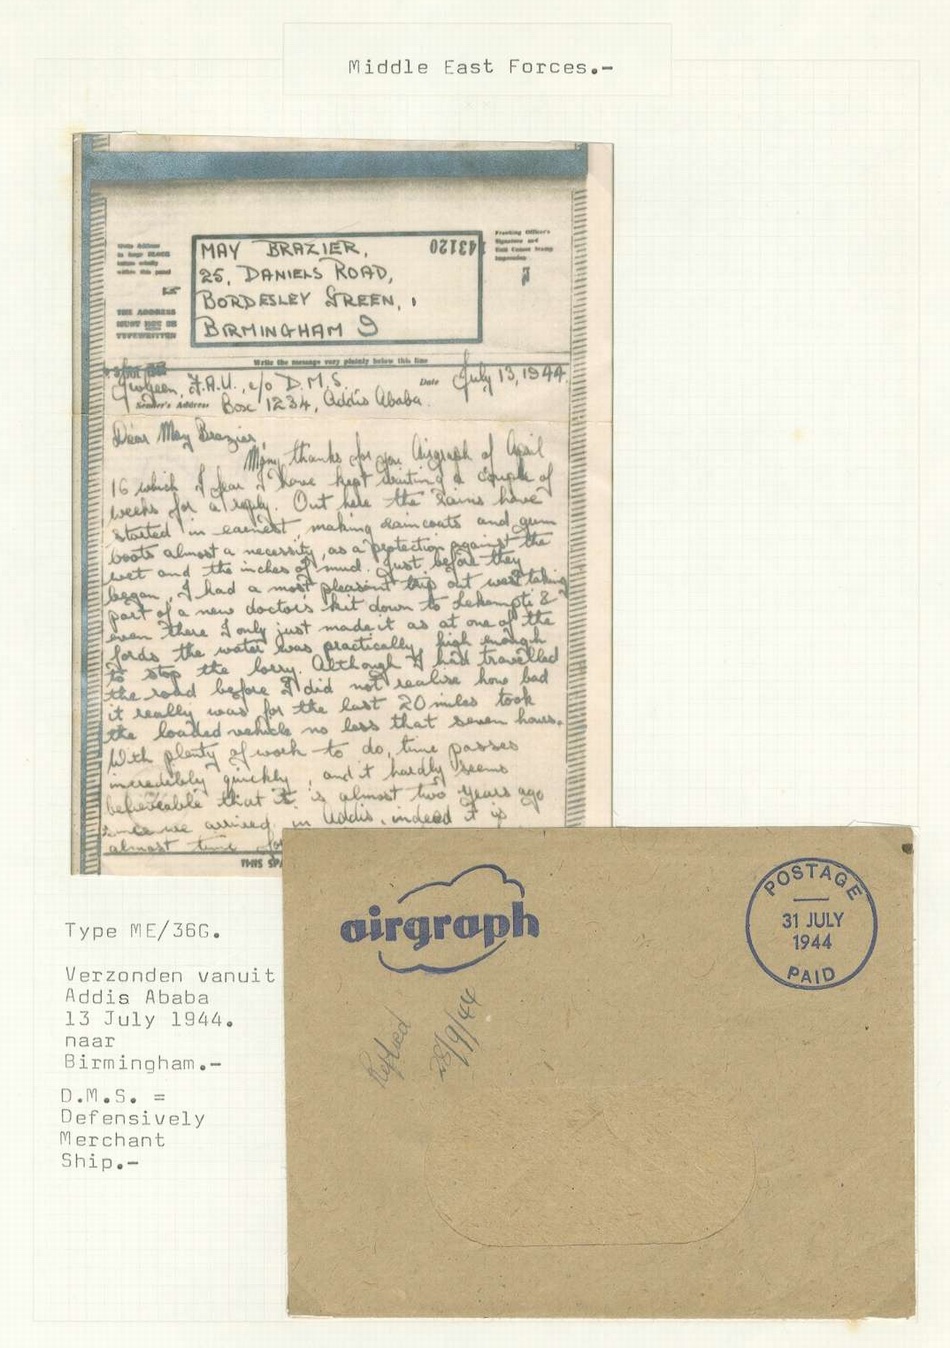 Middle East Forces.-
Write Address
in large BLACK
letters wholly
within this panel
THE ADDRESS
MUST NOT BE
TYPEWRITTEN
MAY BRAZIER,
25, DANIELS ROAD,
BORDESLEY GREEN,
BIRMINGHAM 9
43120
Write the message very plainly below this line
F.A.U., c/o D.M.S.
Date July 13, 1944
Sender's Address Box 1234, Addis Ababa.
Dear May Brazier,
Many thanks for you Airgraph of April
16 which I fear I have kept waiting a couple of
weeks for a reply. Out here the Rains have
started in earnest, making raincoats and gum
boots almost a necessity, as a protection against the
wet and the inches of mud. Just before they
began, I had a most pleasant trip out west taking
part of a new doctors kit down to Lekempti &
even there I only just made it as at one of the
fords the water was practically high enough
to stop the lorry. Although I had travelled
the road before I did not realise how bad
it really was for the last 20 miles took
the loaded vehicle no less that seven hours.
With plenty of work to do, time passes
incredibly quickly, and it hardly seems
believeable that it is almost two years ago
since we arrived in Addis, indeed it is
almost time for
THIS SPA
airgraph
POSTAGE
31 JULY
1944
PAID
Replied
/9/44
Type ME/36G.
Verzonden vanuit
Addis Ababa
13 July 1944.
naar
Birmingham.-
D.M.S. =
Defensively
Merchant
Ship.-